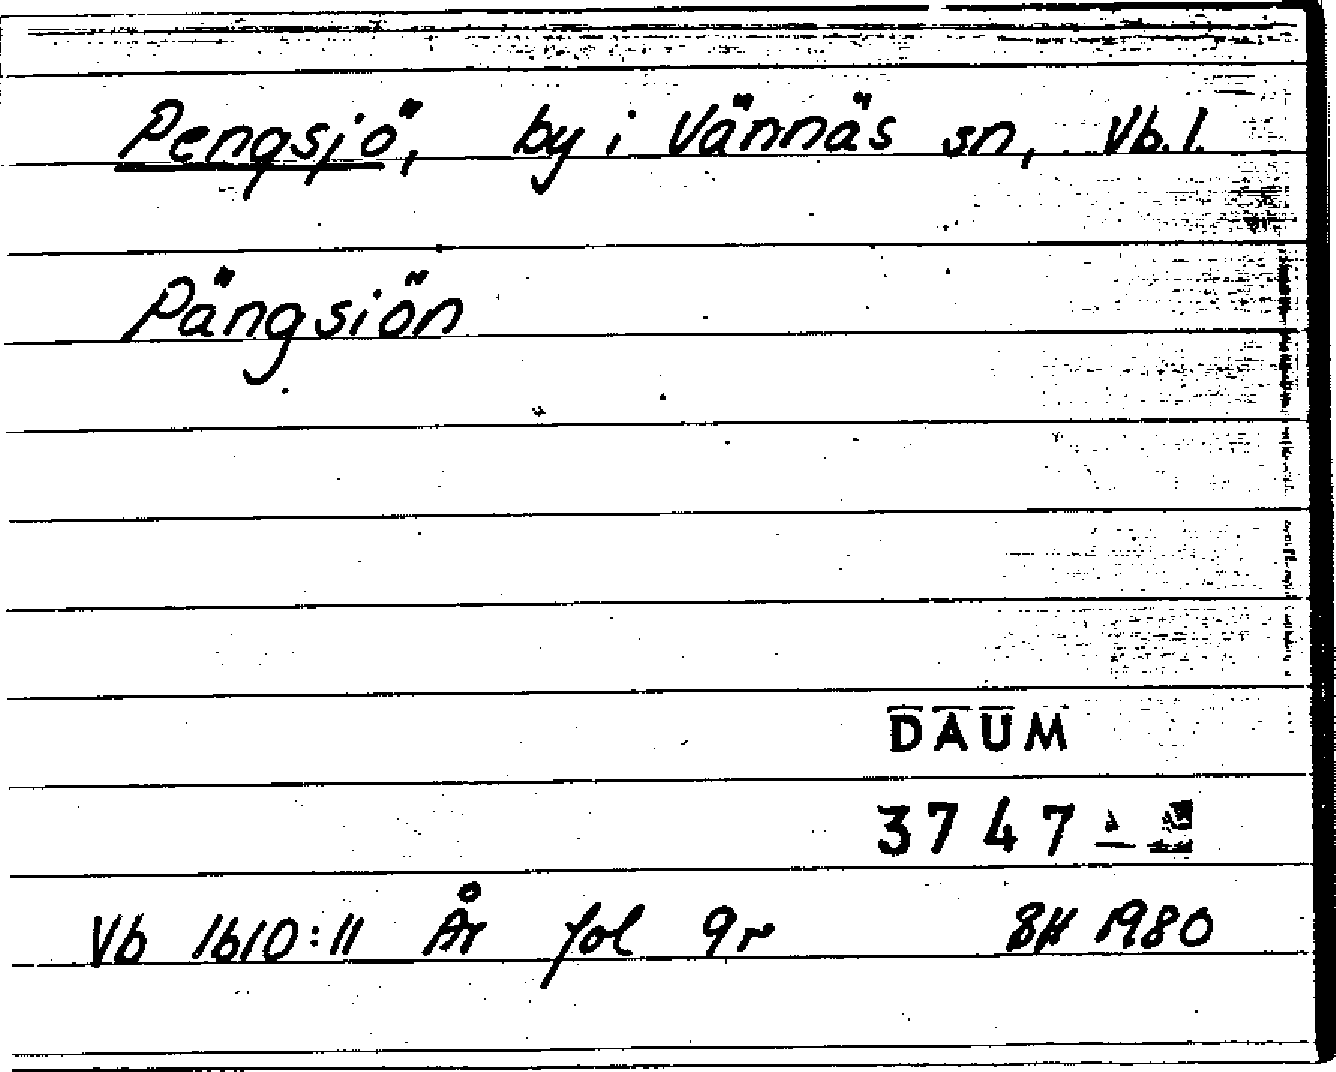 Pengsjö, by i Vännäs sn, Vb. l.
Pängsiön
DAUM
3747
Vb 1610:11 År fol 9r BH 1980